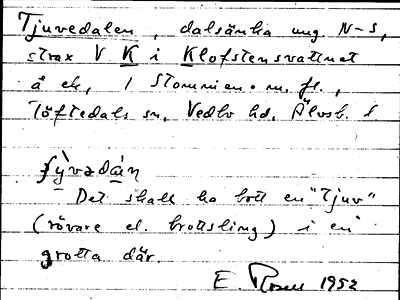 Tjuvedalen, dalsänka ung. N–S,
strax V K i Klofstensvattnet
å ek, 1 Stommen m. fl.,
Töftedals sn, Vedbo hd, Älvsb. l
Det skall ha bott en "Tjuv"
(rövare el. brottsling) i en
grotta där.
E. Rosell 1952